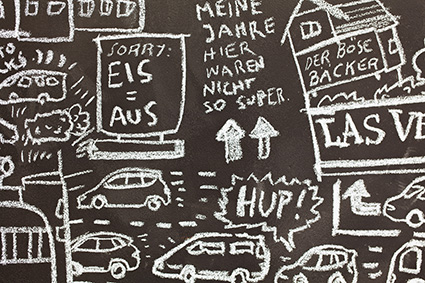 SORRY:
EIS
=
AUS
MEINE
JAHRE
HIER
WAREN
NICHT
SO SUPER.
DER BÖSE
BÄCKER
LAS VE
HUP!